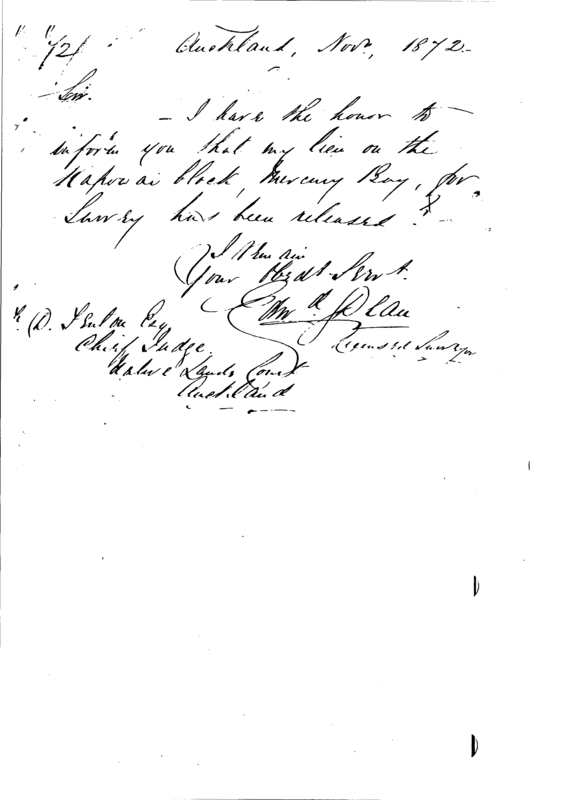 Auckland, Novr, 1872
Sir.
I have the honor to
inform you that my lien on the
Kapowai block, Mercury Bay, for
Survey has been released.
I remain
Your Obedt Servt.
Edwd Dean
Licensed Surveyor
F. D. Fenton Esq
Chief Judge
Native Lands Court
Auckland